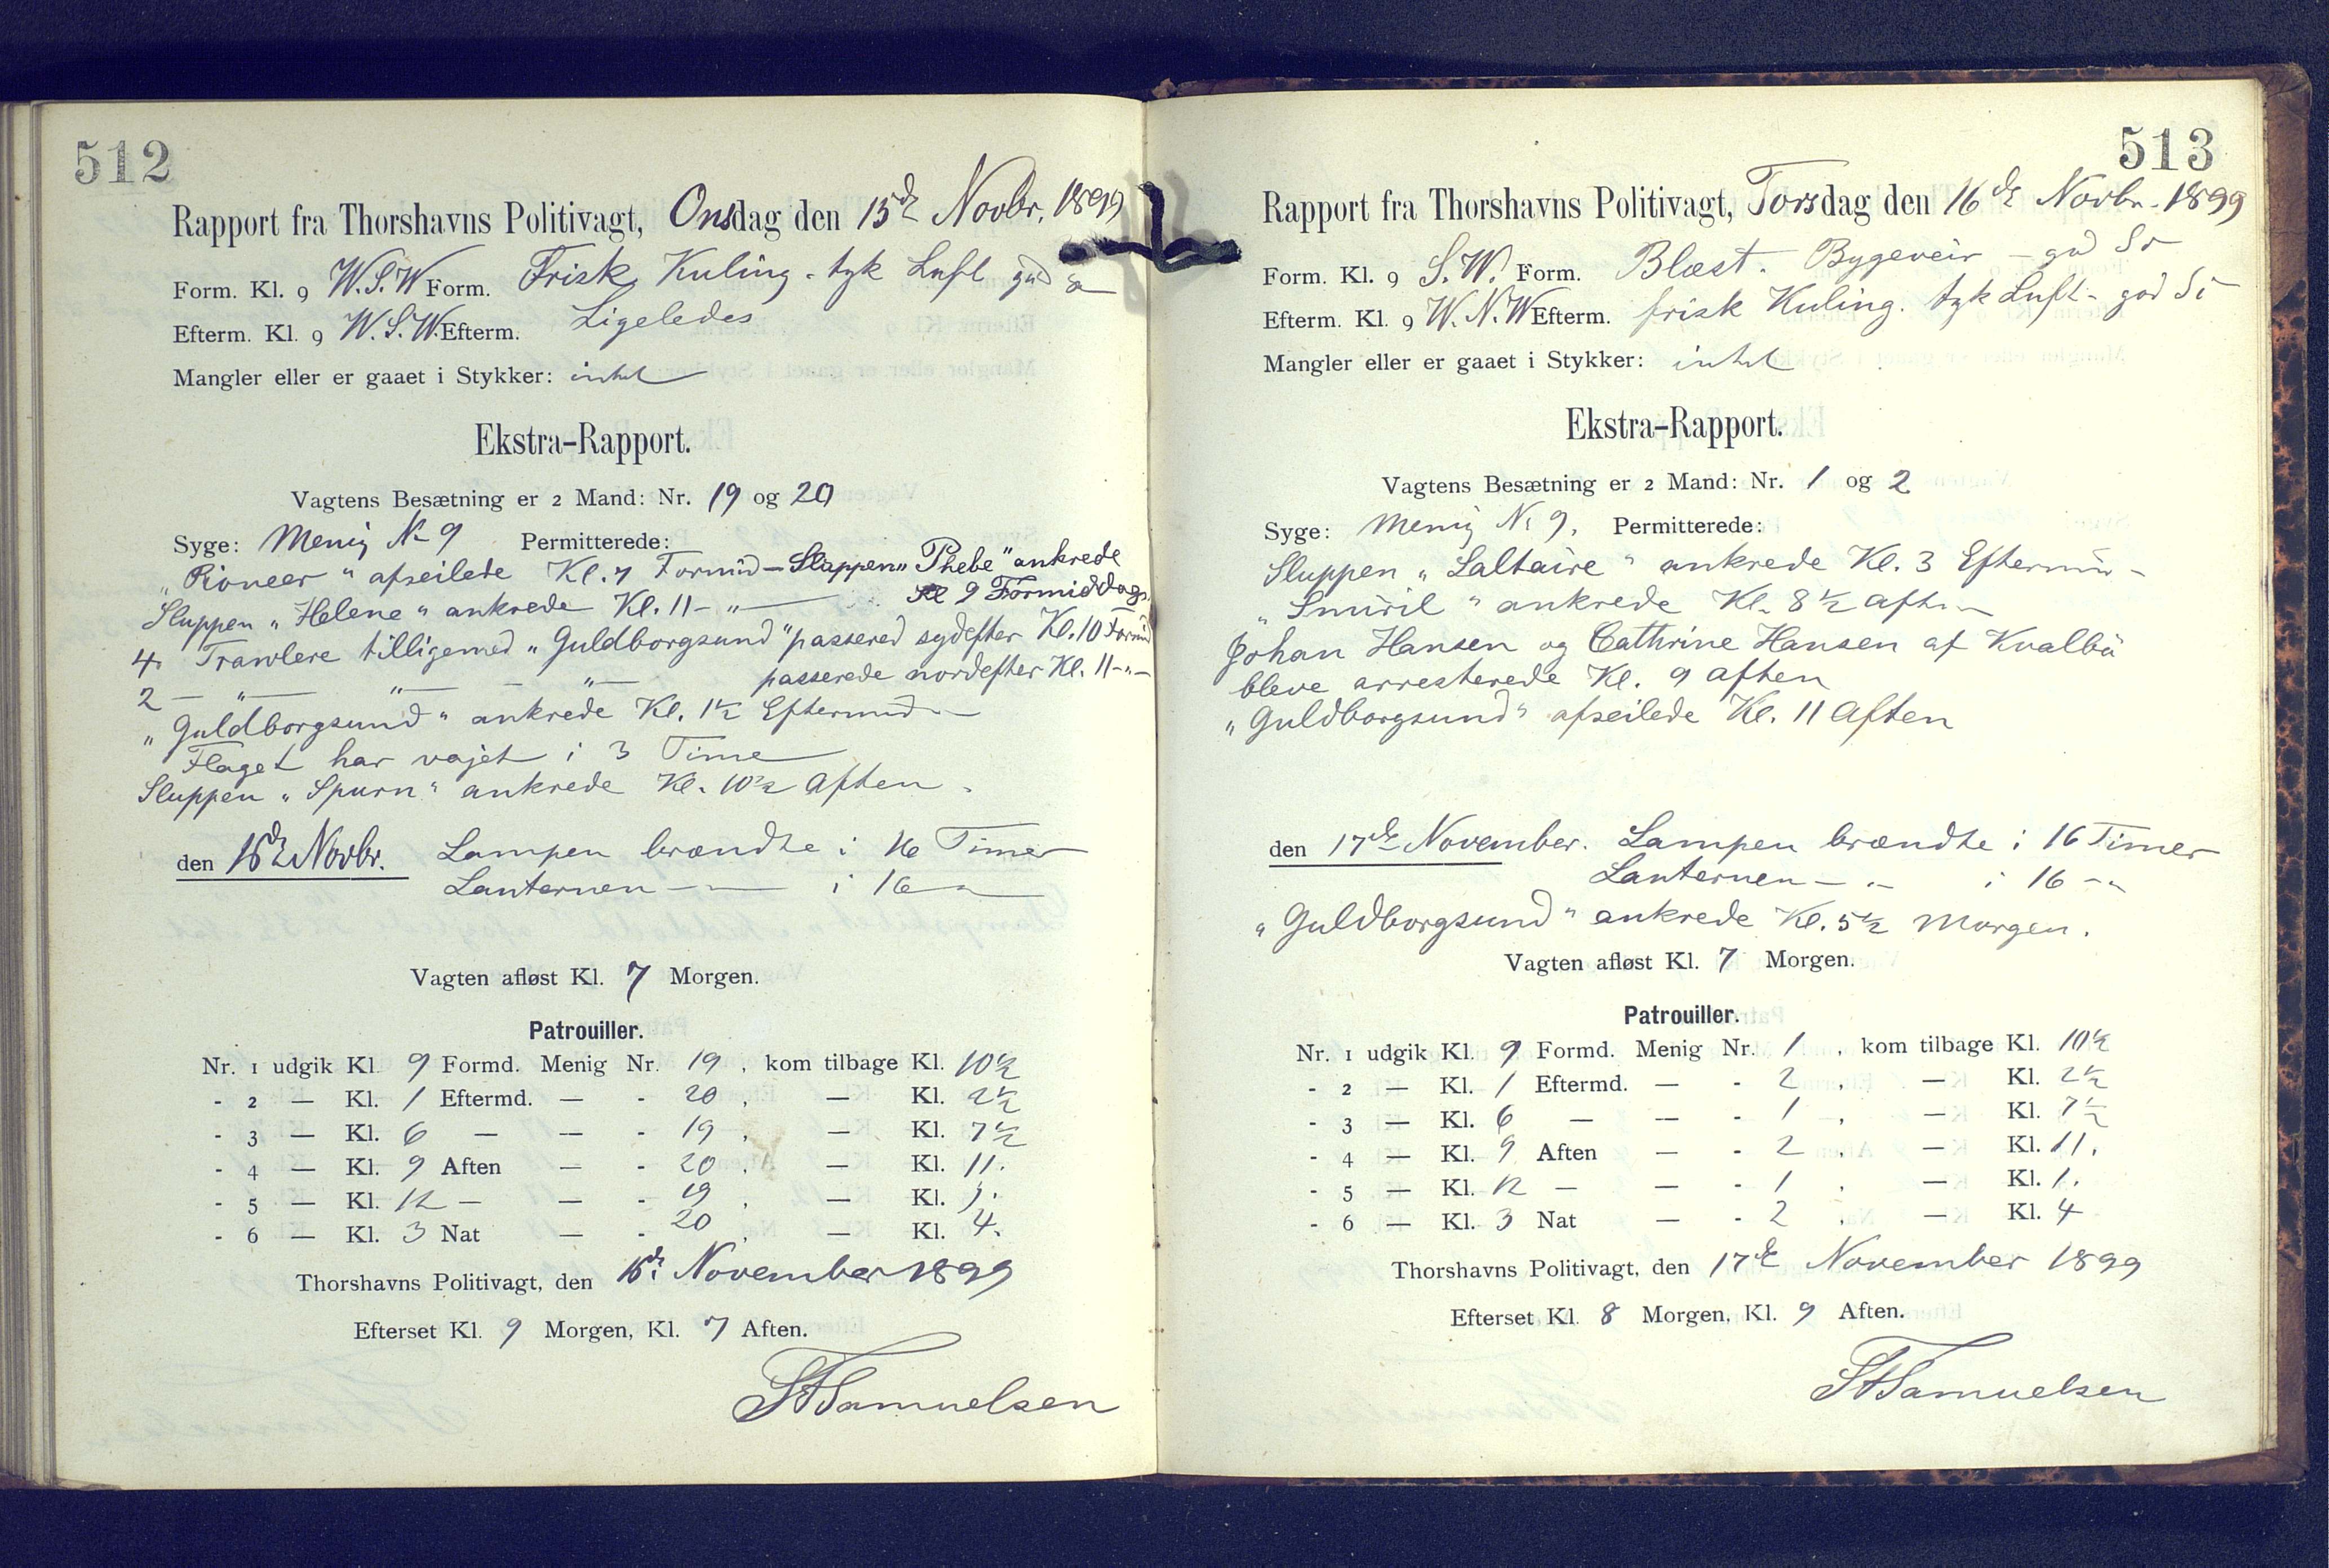 512
Rapport fra Thorshavns Politivagt, Onsdag den 15de Novbr. 1899
Form. Kl. 9 W.S.W Form. Frisk Kuling - tyk Luft god
Efterm. Kl. 9 W.S.W. Efterm. Ligeledes
Mangler eller er gaaet i Stykker: intet
Ekstra-Rapport.
Vagtens Besætning er 2 Mand: Nr. 19 og 20
Syge: Menig No 9 Permitterede:
"Pioneer" afseilede Kl. 7 Formid - Sluppen "Phebe" ankrede
Kl 9 Formiddags.
Sluppen "Helene" ankrede Kl. 11 - " -
4. Trawlere tilligemed "Guldborgsund" passered sydefter Kl. 10 Formid
2 - " - " - " - passerede nordefter Kl. 11 - " -
"Guldborgsund" ankrede Kl. 1½ Eftermid -
Flaget har vajet i 3 Time
Sluppen "Spurn" ankrede Kl. 10½ Aften.
den 16de Novbr. Lampen brændte i 16 Timer
Lanternen - " - i 16 - " -
Vagten afløst Kl. 7 Morgen.
Patrouiller.
Nr. 1 udgik Kl. 9 Formd. Menig Nr. 19, kom tilbage Kl. 10½
- 2 — Kl. 1 Eftermd. — - 20, — Kl. 2½
- 3 — Kl. 6 — — - 19, — Kl. 7½
- 4 — Kl. 9 Aften — - 20, — Kl. 11.
- 5 — Kl. 12 - — - 19, — Kl. 1.
- 6 — Kl. 3 Nat — - 20, — Kl. 4.
Thorshavns Politivagt, den 16de November 1899
Efterset Kl. 9 Morgen, Kl. 7 Aften.
Samuelsen
513
Rapport fra Thorshavns Politivagt, Torsdag den 16de Novbr. 1899
Form. Kl. 9 S.W. Form. Blæst. Bygeveir - god Si
Efterm. Kl. 9 W.N.W Efterm. frisk Kuling. tyk Luft - god Si
Mangler eller er gaaet i Stykker: intet
Ekstra-Rapport.
Vagtens Besætning er 2 Mand: Nr. 1 og 2
Syge: Menig No 9. Permitterede:
Sluppen "Saltaire" ankrede Kl. 3 Eftermid -
"Smiril" ankrede Kl. 8½ Aften
Johan Hansen og Cathrine Hansen af Kvalbø
bleve arresterede Kl. 9 Aften
"Guldborgsund" afseilede Kl. 11 Aften
den 17de November. Lampen brændte i 16 Timer
Lanternen - " - i 16 - "
"Guldborgsund" ankrede Kl. 5½ Morgen.
Vagten afløst Kl. 7 Morgen.
Patrouiller.
Nr. 1 udgik Kl. 9 Formd. Menig Nr. 1, kom tilbage Kl. 10½
- 2 — Kl. 1 Eftermd. — - 2, — Kl. 2½
- 3 — Kl. 6 — — - 1, — Kl. 7½
- 4 — Kl. 9 Aften — - 2, — Kl. 11.
- 5 — Kl. 12 — — - 1, — Kl. 1.
- 6 — Kl. 3 Nat — - 2, — Kl. 4
Thorshavns Politivagt, den 17de November 1899
Efterset Kl. 8 Morgen, Kl. 9 Aften.
Samuelsen